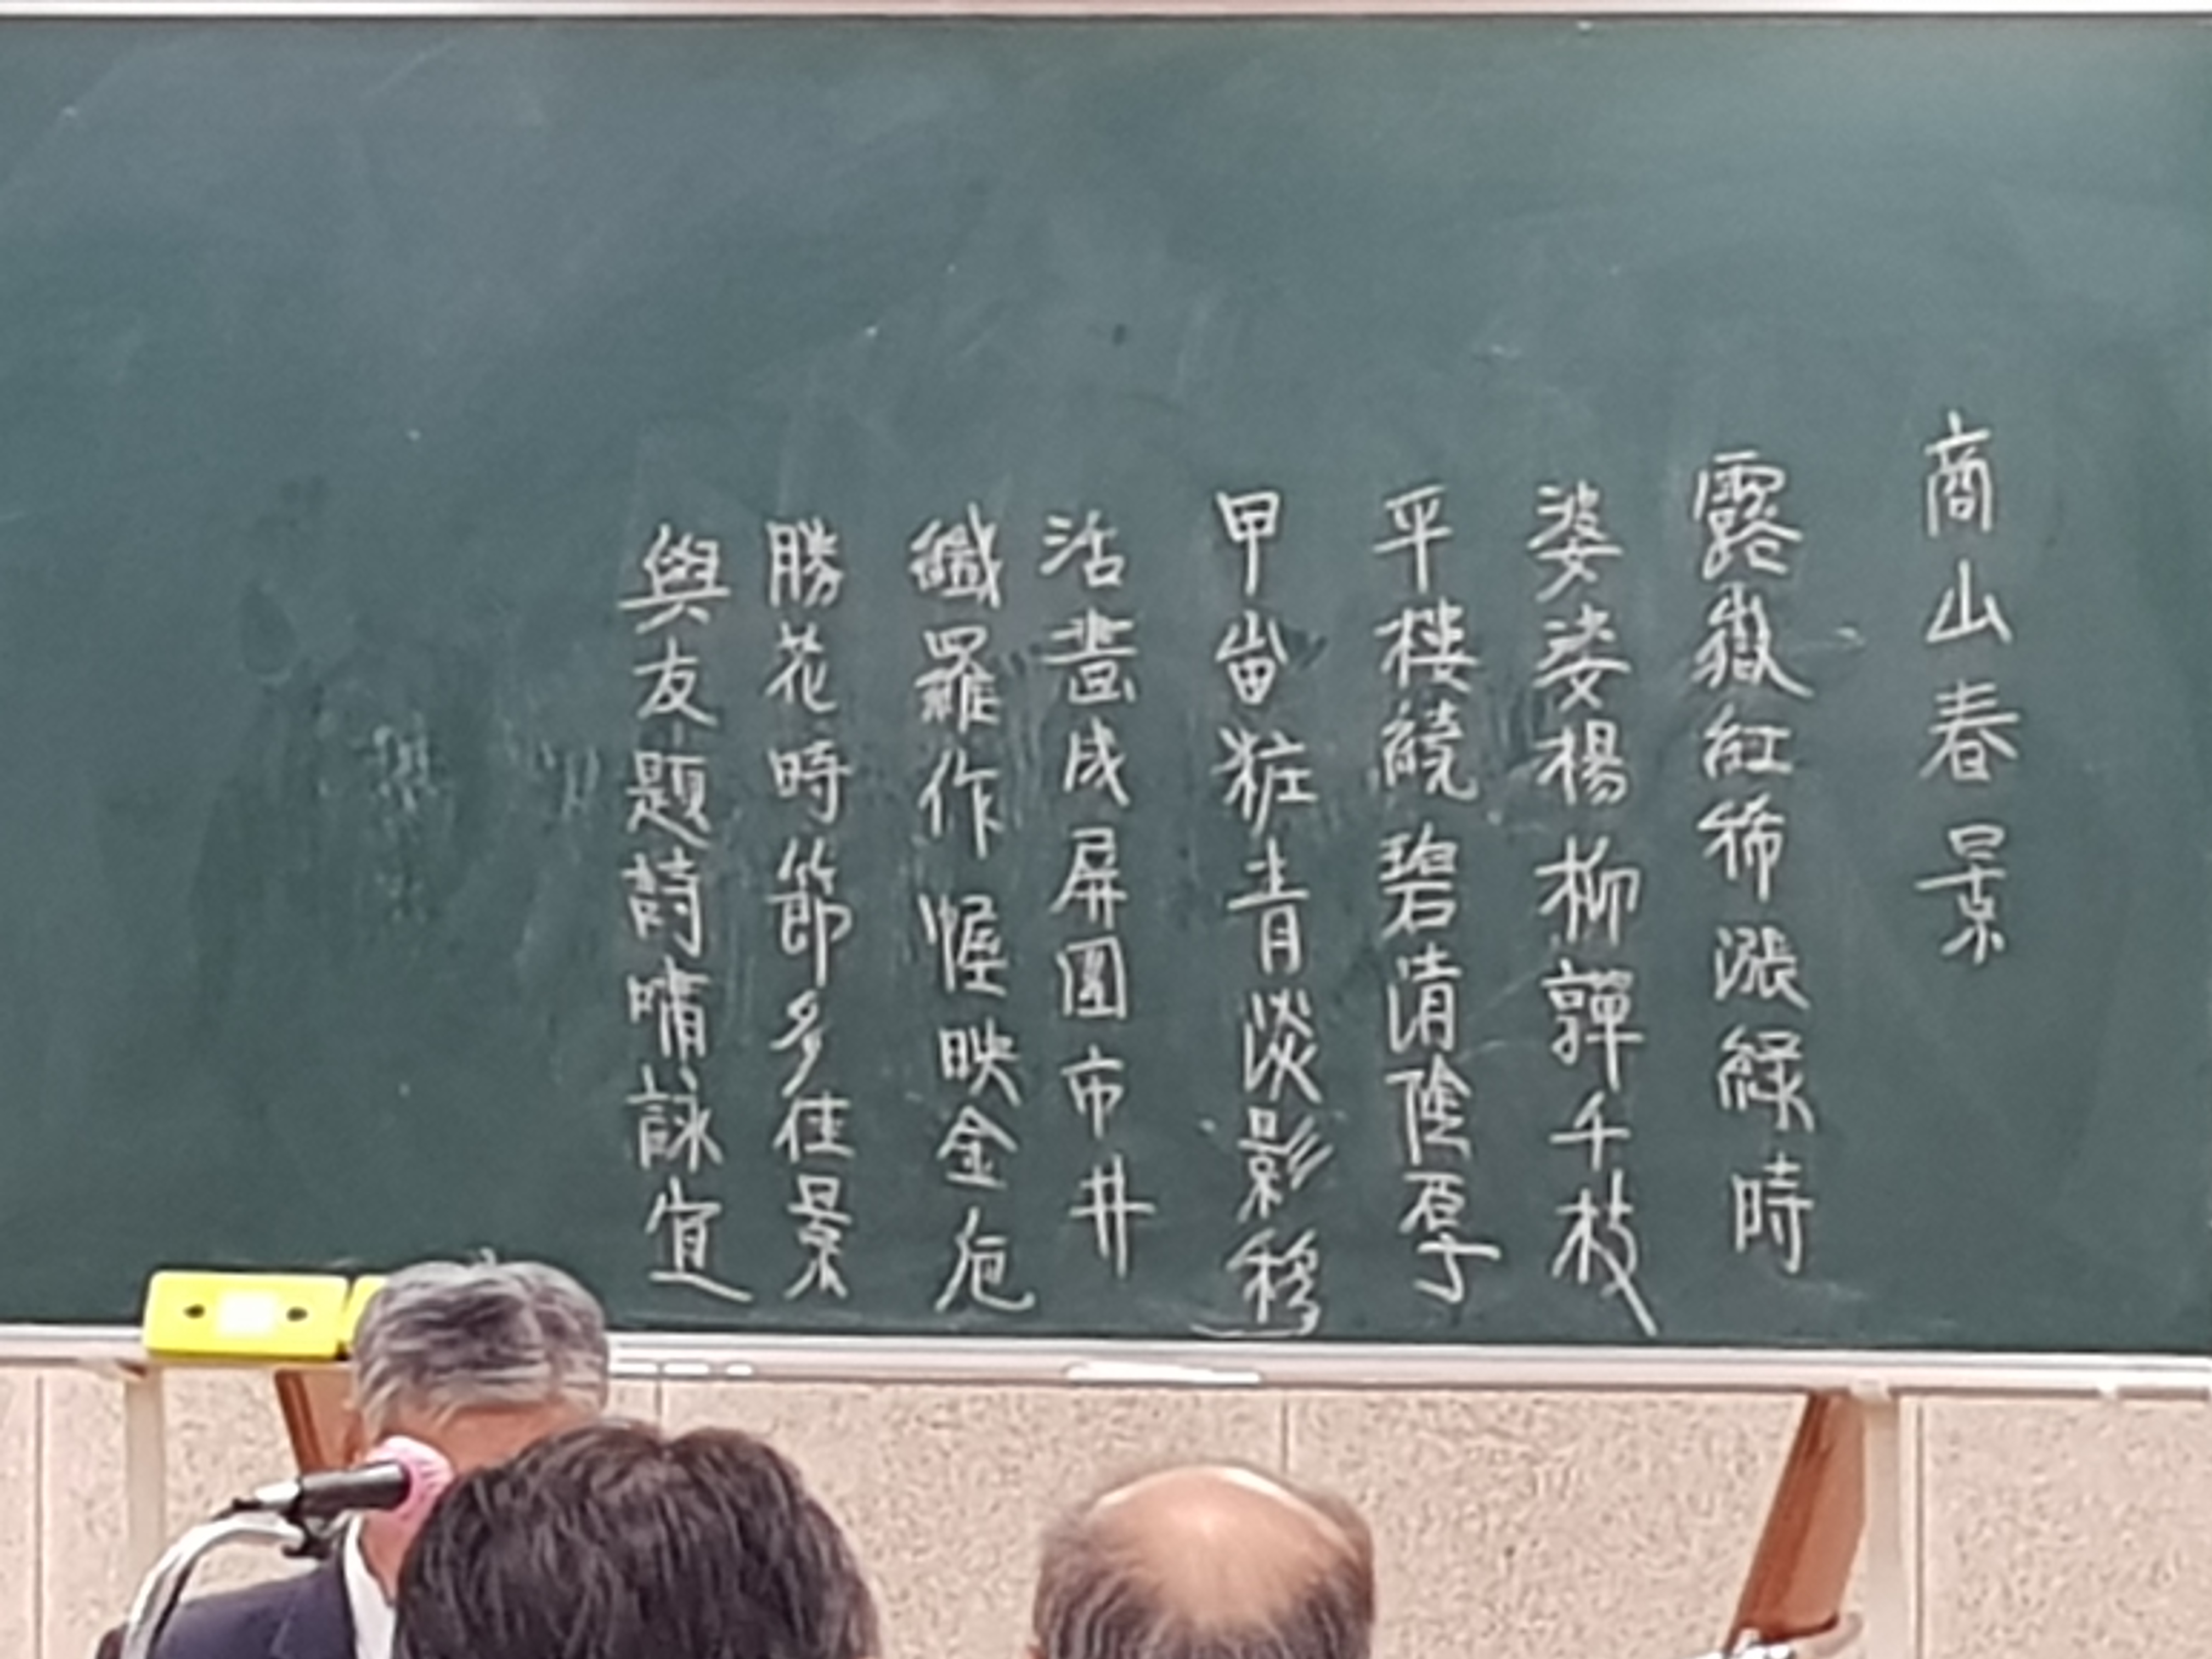 商山春景
露嶽紅稀漲緑時
婆娑楊柳嚲千枝
平楼繞碧清陰厚
甲畓粧青淡影移
活畵成屏圍市井
纖羅作幄映金卮
勝花時節多佳景
與友題詩晴詠宜